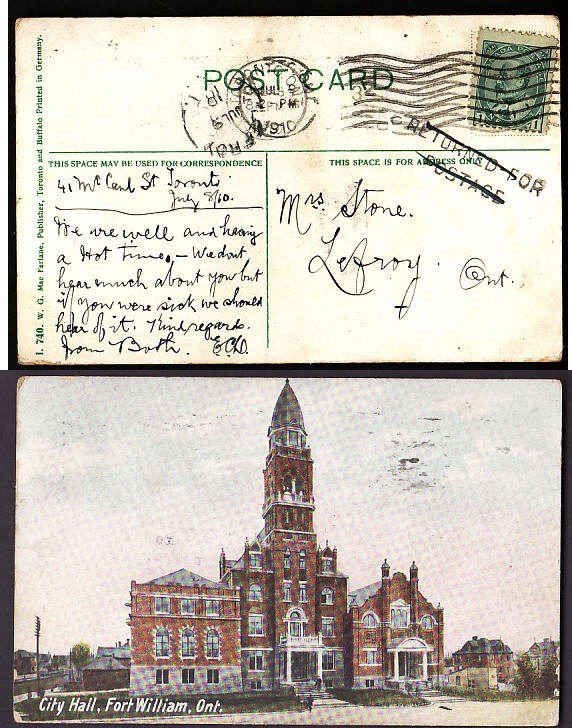 POST CARD
TORONTO, ONT.
JUL 8
PM
1910
LEFROY
JUL 9
RETURNED FOR
POSTAGE
CANADA POSTAGE
I. 740. W. G. Mac Farlane, Publisher, Toronto and Buffalo Printed in Germany.
THIS SPACE MAY BE USED FOR CORRESPONDENCE
THIS SPACE IS FOR ADDRESS ONLY
41 McCaul St Toronto
July 8/10.
We are well and having
a Hot time, — We don't
hear much about you but
if you were sick we should
hear of it. Kind regards.
from Both.
Mrs Stone.
Lefroy.
Ont.
City Hall, Fort William, Ont.